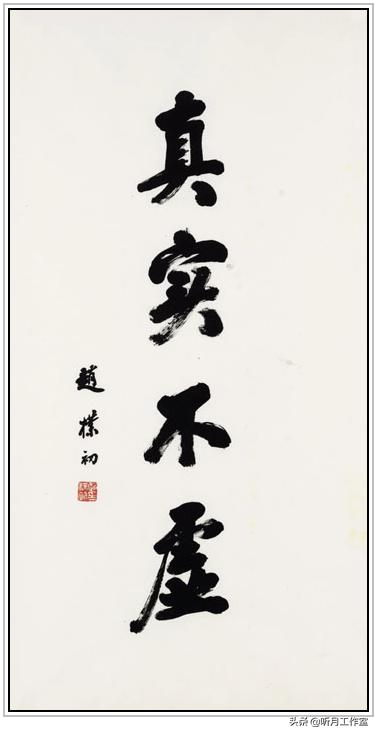 真实不虚
趙樸初
头条 @听月工作室